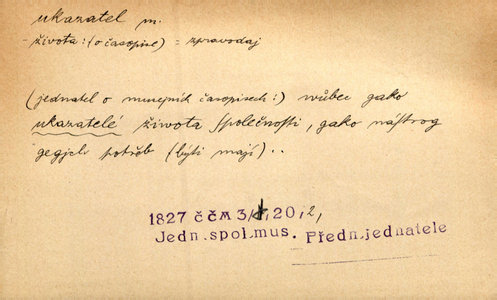 ukazatel m.
- života: (o časopise) = zpravodaj
(jednatel o musejních časopisech:) wůbec gako
ukazatelé života společnosti, gako nástrog
gegjch potřeb (býti mají)..
1827 ČČM 3/ 20, 2,
Jedn.spol.mus. Předn.jednatele